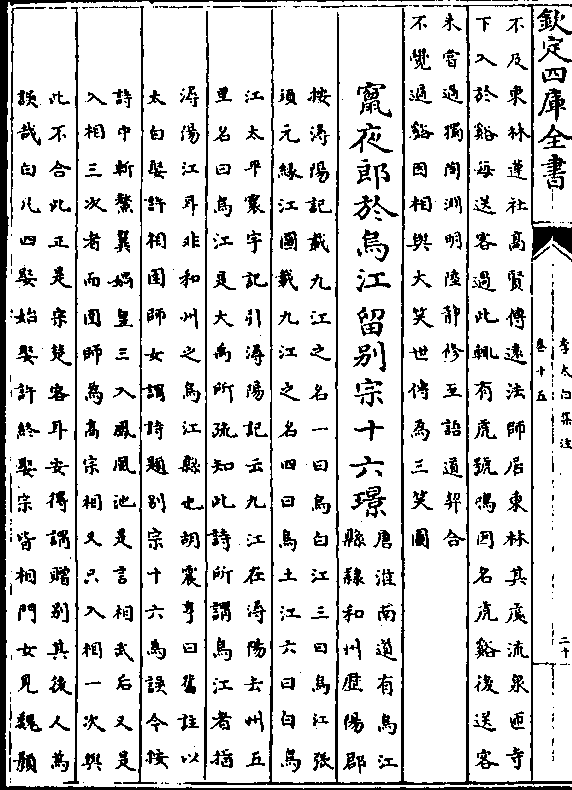 欽定四庫全書
李太白集注
卷十五
二十
不及東林蓮社高賢傳遠法師居東林其處流泉匝寺
下入於谿每送客過此輒有虎號鳴因名虎谿後送客
未嘗過獨陶淵明陸靜修至語道契合
不覺過谿因相與大笑世傳為三笑圖
竄夜郎於烏江留別宗十六璟
唐淮南道有烏江
縣隸和州歷陽郡
按潯陽記載九江之名一曰烏白江三曰烏江張
須元緣江圖載九江之名四曰烏土江六曰白烏
江太平寰宇記引潯陽記云九江在潯陽去州五
里名曰烏江是大禹所疏知此詩所謂烏江者指
潯陽江耳非和州之烏江縣也胡震亨曰舊註以
太白娶許相圉師女謂詩題別宗十六為誤今按
詩中斬鰲翼媧皇三入鳳凰池是言相武后又是
入相三次者而圉師為高宗相又只入相一次與
此不合此正是宗楚客耳安得謂贈別其後人為
誤哉白凡四娶始娶許終娶宗皆相門女見魏顥